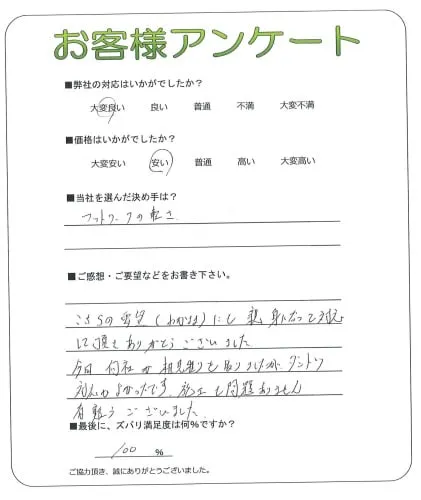 お客様アンケート
■弊社の対応はいかがでしたか？
大変良い 良い 普通 不満 大変不満
■価格はいかがでしたか？
大変安い 安い 普通 高い 大変高い
■当社を選んだ決め手は？
フットワークの軽さ
■ご感想・ご要望などをお書き下さい。
こちらの要望(わがまま)にも親身になって対応
して頂きありがとうございました
今回 何社か相見積りも取りましたが、ダントツ
対応がよかったです。施工も問題ありません
有難うございました。
■最後に、ズバリ満足度は何％ですか？
100 %
ご協力頂き、誠にありがとうございました。